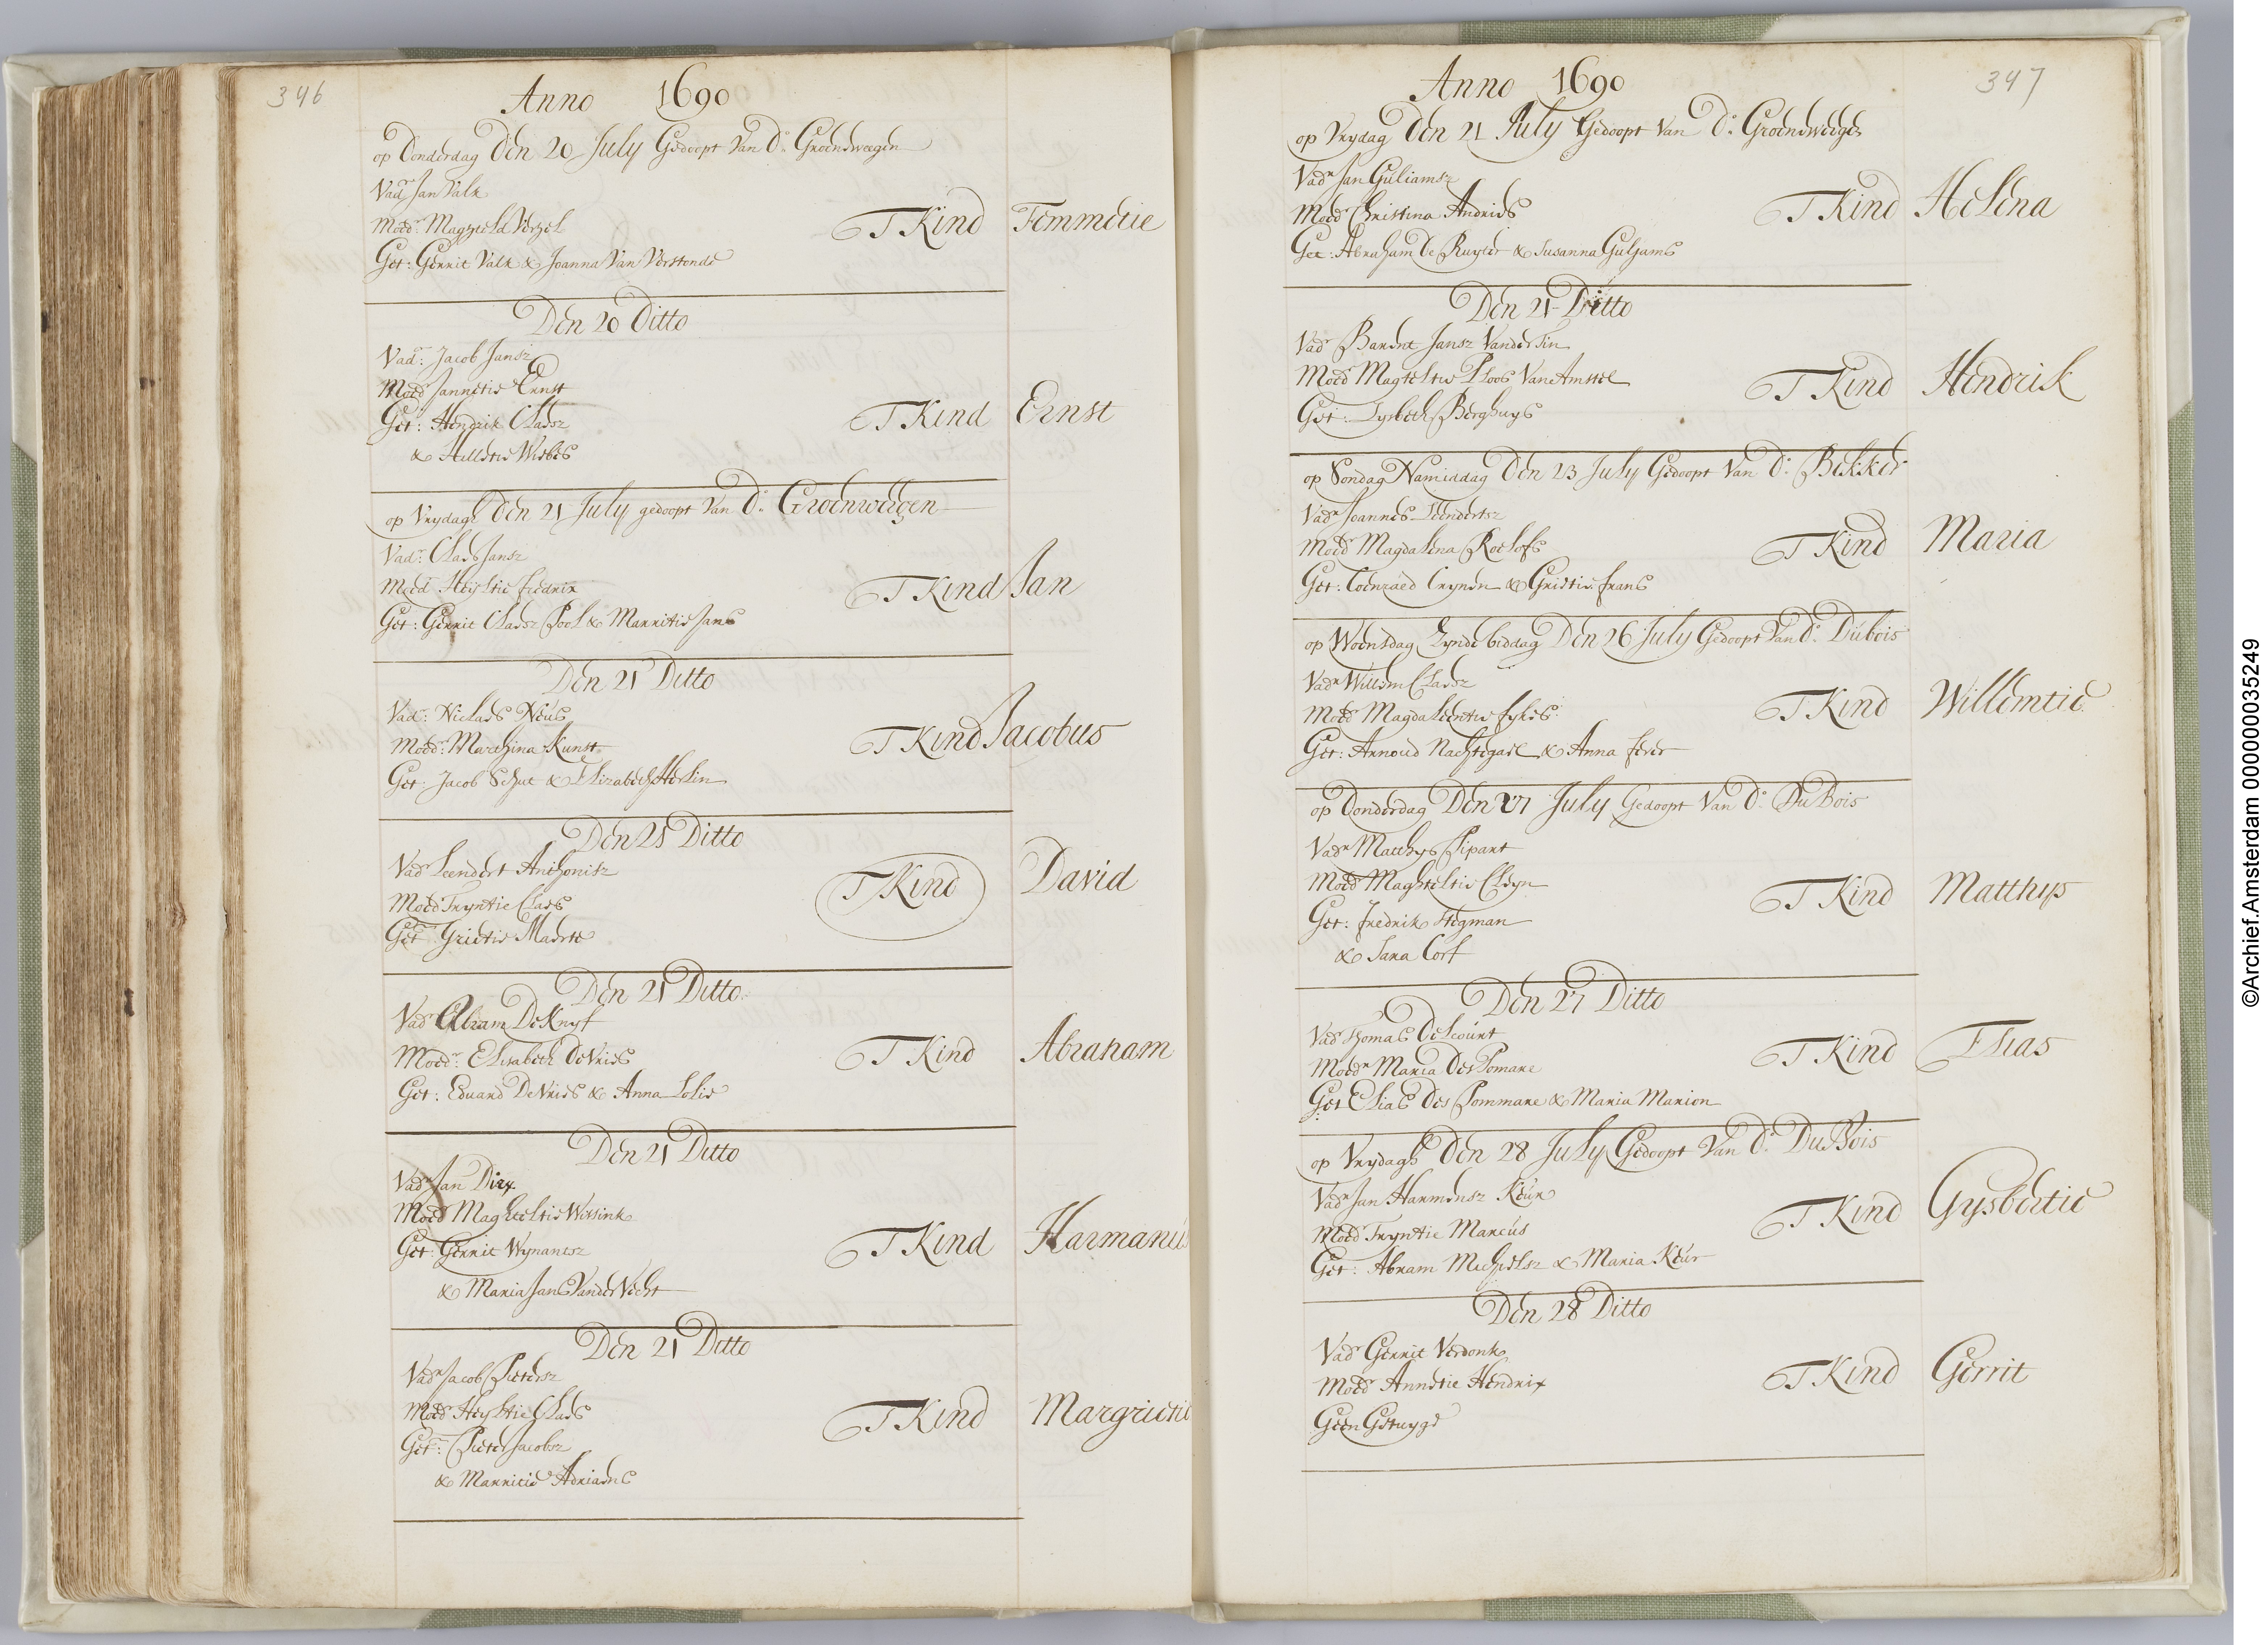 346
Anno 1690
op Donderdag Den 20 July Gedoopt Van Ds. Groenewegen
Vadr Jan Valk
Moedr: Maghteld Versel
Get: Gerrit Valk & Joanna Van
T Kind Femmetie
Den 20 Ditto
Vadr: Jacob Jansz
Moedr Jannetie Ernst
Get: Hendrik Claesz
& Hilletie Wiebes
T Kind Ernst
op Vrydagh Den 21 July gedoopt Van Ds. Groenwegen
Vadr: Claes Jansz
Moedr Heyltie fredrix
Get: Gerrit Claesz Pool & Marritie Jans
T Kind Jan
Den 21 Ditto
Vadr: Niclaes Neus
Moedr: Marthina Kunst
Get: Jacob Schut & Elizabeth Herlin
T Kind Jacobus
Den 21 Ditto
Vadr Leendert Anthonisz
Moedr Tryntie Claes
Get Grietie
T Kind David
Den 21 Ditto
Vadr Abram De Knyf
Moedr: Elisabeth De Vries
Get: Eduard De Vries & Anna Lolie
T Kind Abraham
Den 21 Ditto
Vadr Jan Dirx
Moedr Maghteltie Wissink
Get: Gerrit Wynantsz
& Maria Jans Vander Vecht
T Kind Harmanús
Den 21 Ditto
Vadr Jacob Pietersz
Moedr Heyltie Claes
Get: Pieter Jacobsz
& Marritie Adriaens
T Kind Margrietie
Anno 1690
347
op Vrydag Den 21 July Gedoopt Van Ds. Groenewegen
Vadr Jan Guliamsz
Moedr Christina Andries
Get: Abraham De Ruyter & Susanna Guljams
T Kind Helena
Den 21 Ditto
Vadr Barent Jansz Vander Lin
Moedr Magteltie Ploos Van Amstel
Get: Lysbeth Berghuys
T Kind Hendrik
op Sondag Namiddag Den 23 July Gedoopt Van Ds. Bekker
Vadr Joannes Leendertsz
Moedr Magdalena Roelofs
Get: Coenraed Crynen & Grietie frans
T Kind Maria
op Woensdag Zynde biddag Den 26 July Gedoopt Van Ds. Dúbois
Vadr Willem Claesz
Moedr Magdaleentie fykes
Get: Arnoud Nachtegael & Anna
T Kind Willemtie
op Donderdag Den 27 July Gedoopt Van Ds. Du Bois
Vadr Matthys Pipart
Moedr Maghteltie Cleyn
Get: fredrik Stegman
& Sara Corf
T Kind Matthys
Den 27 Ditto
Vadr Thomas Delcoúrt
Moedr Maria Des Pomare
Get Elias Des Pommare & Maria Marion
T Kind Elias
op Vrydagh Den 28 July Gedoopt Van Ds. Du Bois
Vadr Jan Harmensz Keúr
Moedr Tryntie Marcús
Get: Abram Machielsz & Maria Keúr
T Kind Gysbertie
Den 28 Ditto
Vadr Gerrit Verdonk
Moedr Annetie Hendrix
Geen Getuyge
T Kind Gerrit
©Archief.Amsterdam 000000035249